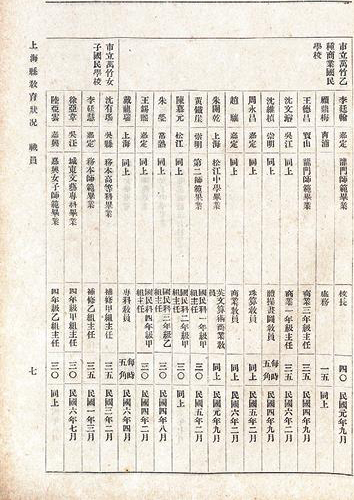 市立萬竹乙種商業國民學校
李廷翰 嘉定 龍門師範畢業 校長 四〇 民國元年九月
顧蔭梅 青浦 庶務 一五 同上
王德昌 寶山 龍門師範畢業 商業三年級主任 三五 民國四年九月
沈文瑢 吳江 龍門師範畢業 商業一年級主任 三五 民國六年二月
沈維楨 崇明 同上 體操畫圖敎員 每時五角 民國四年九月
周永昌 嘉定 同上 珠算敎員 三五 民國五年九月
趙驥 嘉定 同上 商業敎員 同上 民國六年二月
朱開乾 上海 松江中學畢業 英文算術商業敎員 同上 民國元年九月
黃鐵崖 崇明 第二師範畢業 國民科一年級甲組主任 三〇 民國五年二月
陳嘉元 松江 同上 國民科二年級甲組主任 同上 同上
朱榮 常熟 同上 國民科三年級乙組主任 三〇 民國四年八月
王錫 嘉定 同上 國民科四年級甲組主任 三〇 民國四年二月
戴龍瑞 上海 同上 專科敎員 每時五角 民國六年四月
市立萬竹女子國民學校
沈有瑤 吳縣 務本高等科畢業 補修甲組主任 三五 民國三年二月
李硅慧 嘉定 務本師範畢業 補修乙組主任 三五 民國一年三月
徐亞章 吳江 城東文藝專科畢業 四年級甲組主任 三〇 民國六年七月
陸亞雲 嘉興 嘉興女子師範畢業 四年級乙組主任 三〇 同上
上海縣敎育狀况 職員 七